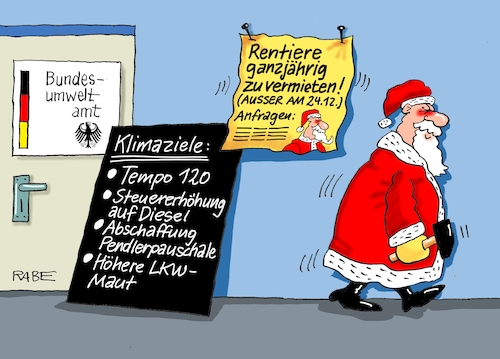 Bundes-
umwelt
amt
Klimaziele:
• Tempo 120
• Steuererhöhung
auf Diesel
• Abschaffung
Pendlerpauschale
• Höhere LKW-
Maut
Rentiere
ganzjährig
zu vermieten!
(AUSSER AM 24.12.)
Anfragen:
RABE